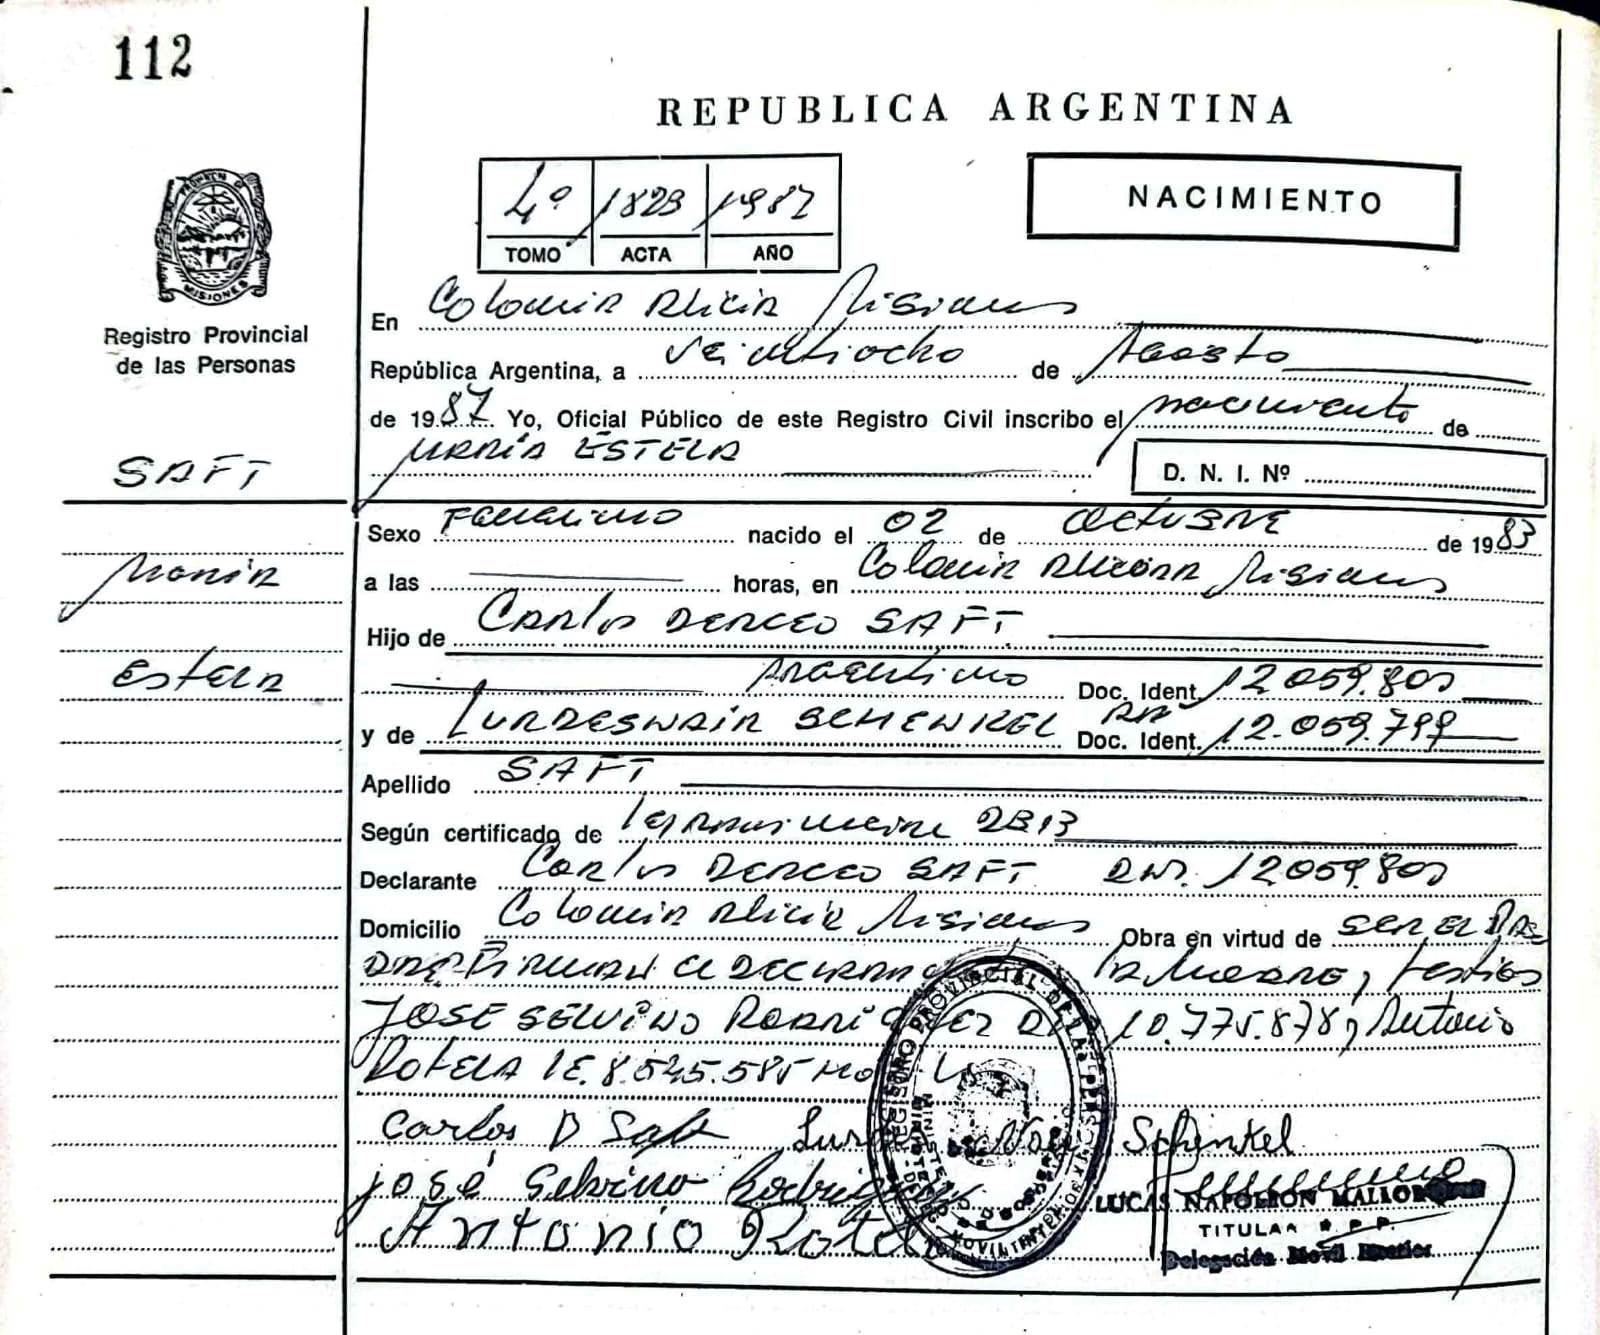 112
REPUBLICA ARGENTINA
4º 1823 1987
TOMO ACTA AÑO
NACIMIENTO
PROVINCIA DE MISIONES
Registro Provincial
de las Personas
En Colonia Alicia Misiones
República Argentina, a veintiocho de Agosto
de 1987. Yo, Oficial Público de este Registro Civil inscribo el nacimiento de
MARÍA ESTELA
D. N. I. Nº
SAFT
María
Estela
Sexo Femenino nacido el 02 de octubre de 1983
a las horas, en Colonia Alicia Misiones
Hijo de Carlos DERCEO SAFT
Argentino Doc. Ident. 12059.800
y de LURDESNAIR SCHENKEL Doc. Ident. 12.059.799
Apellido SAFT
Según certificado de 2313
Declarante Carlos DERCEO SAFT DNI. 12059.800
Domicilio Colonia Alicia Misiones Obra en virtud de SER EL PA
DRE-Firman el declarante la Madre, testigos
JOSE SELVINO RODRIGUEZ 10.775.878, Antonio
Rotela 8.545.585
Carlos D Saft Schinkel
josé Selvino Rodriguez
Antonio Rotela
LUCAS NAPOLEON
TITULAR R.P.P.
Delegación Movil
REGISTRO PROVINCIAL DE LAS PERSONAS